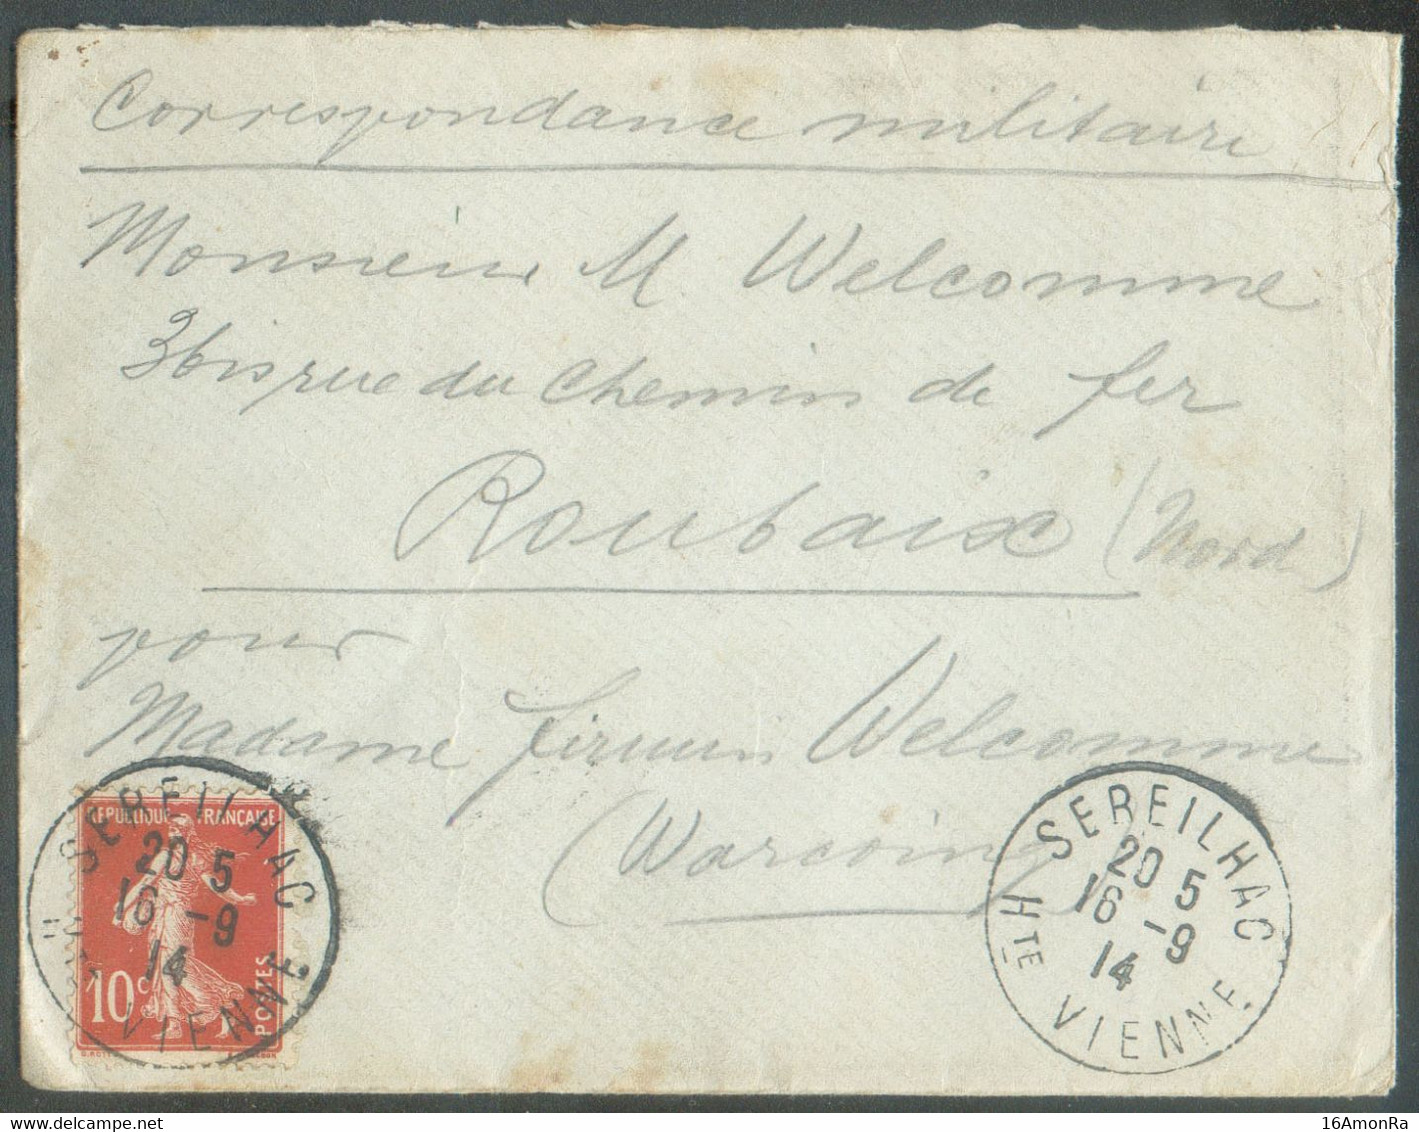 Correspondance militaire
Monsieur M Welcomme
3bis rue du Chemin de fer
Roubaix (Nord)
pour
Madame firmin Welcomme
(Warcoing)
SEREILHAC
20 5
16 -9
14
HTE VIENNE
REPUBLIQUE FRANÇAISE
10c
POSTES
SEREILHAC
20 5
16 -9
14
HTE VIENNE
16AmonRa